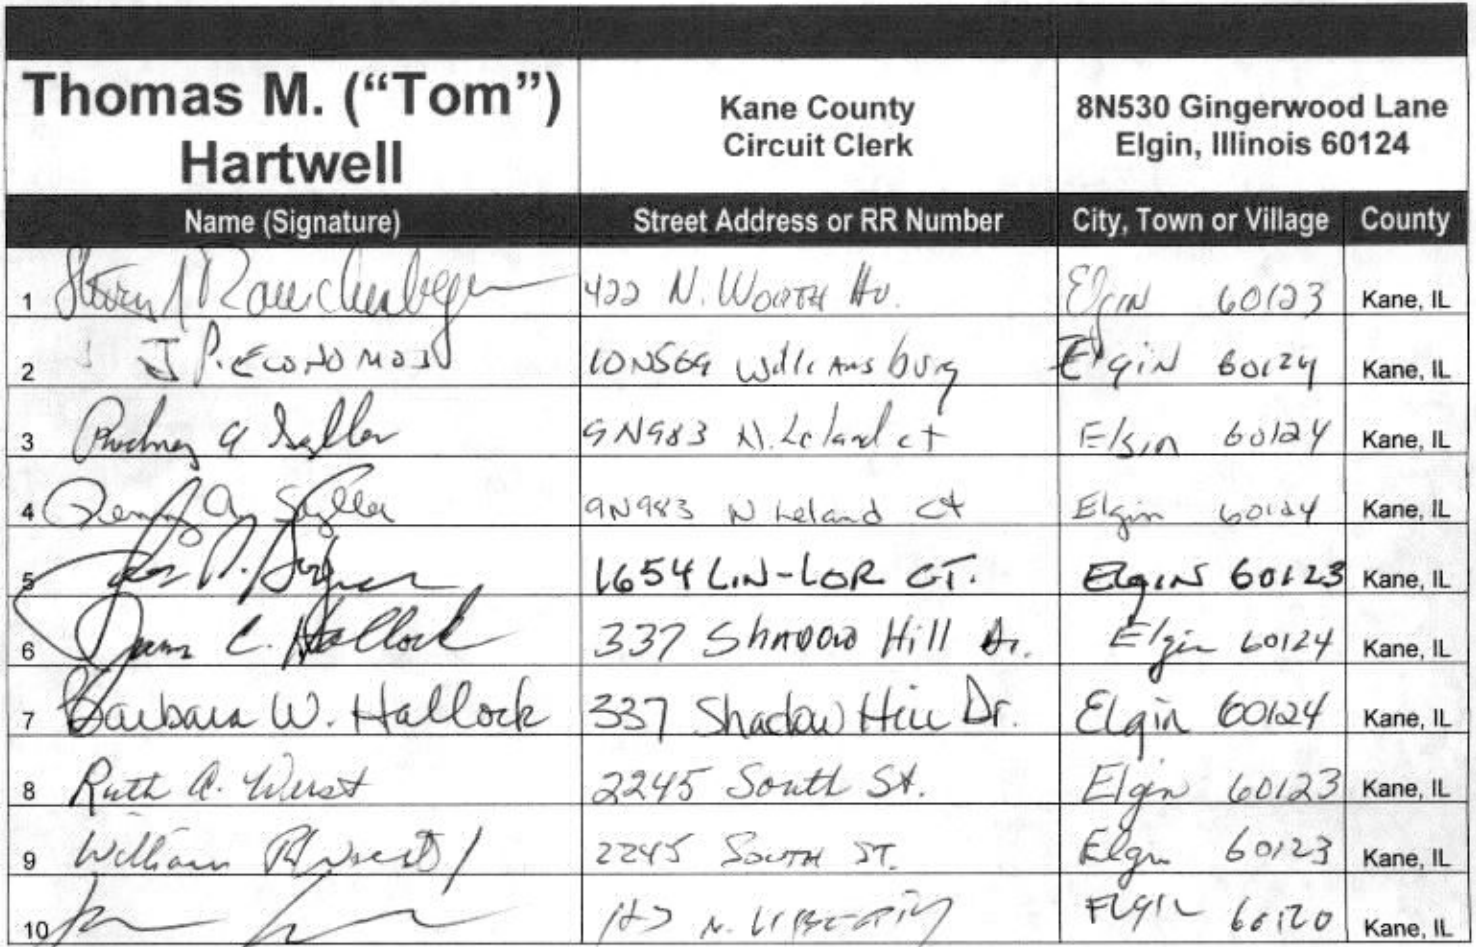 Thomas M. (“Tom”) Hartwell Kane County Circuit Clerk 8N530 Gingerwood Lane Elgin, Illinois 60124
Name (Signature) Street Address or RR Number City, Town or Village County
1 Rauschenberger 422 N. Worth Av. Elgin 60123 Kane, IL
2 J P. Economos 10N569 Williamsburg Elgin 60124 Kane, IL
3 Rodney A 9N983 N. Leland ct Elgin 60124 Kane, IL
4 9N983 N Leland Ct Elgin 60124 Kane, IL
5 1654 LIN-LOR CT. Elgin 60123 Kane, IL
6 C. Hallock 337 Shadow Hill Dr. Elgin 60124 Kane, IL
7 Barbara W. Hallock 337 Shadow Hill Dr. Elgin 60124 Kane, IL
8 Ruth A. Wurst 2245 South St. Elgin 60123 Kane, IL
9 William 2245 South ST. Elgin 60123 Kane, IL
10 N. Liberty Elgin 60120 Kane, IL